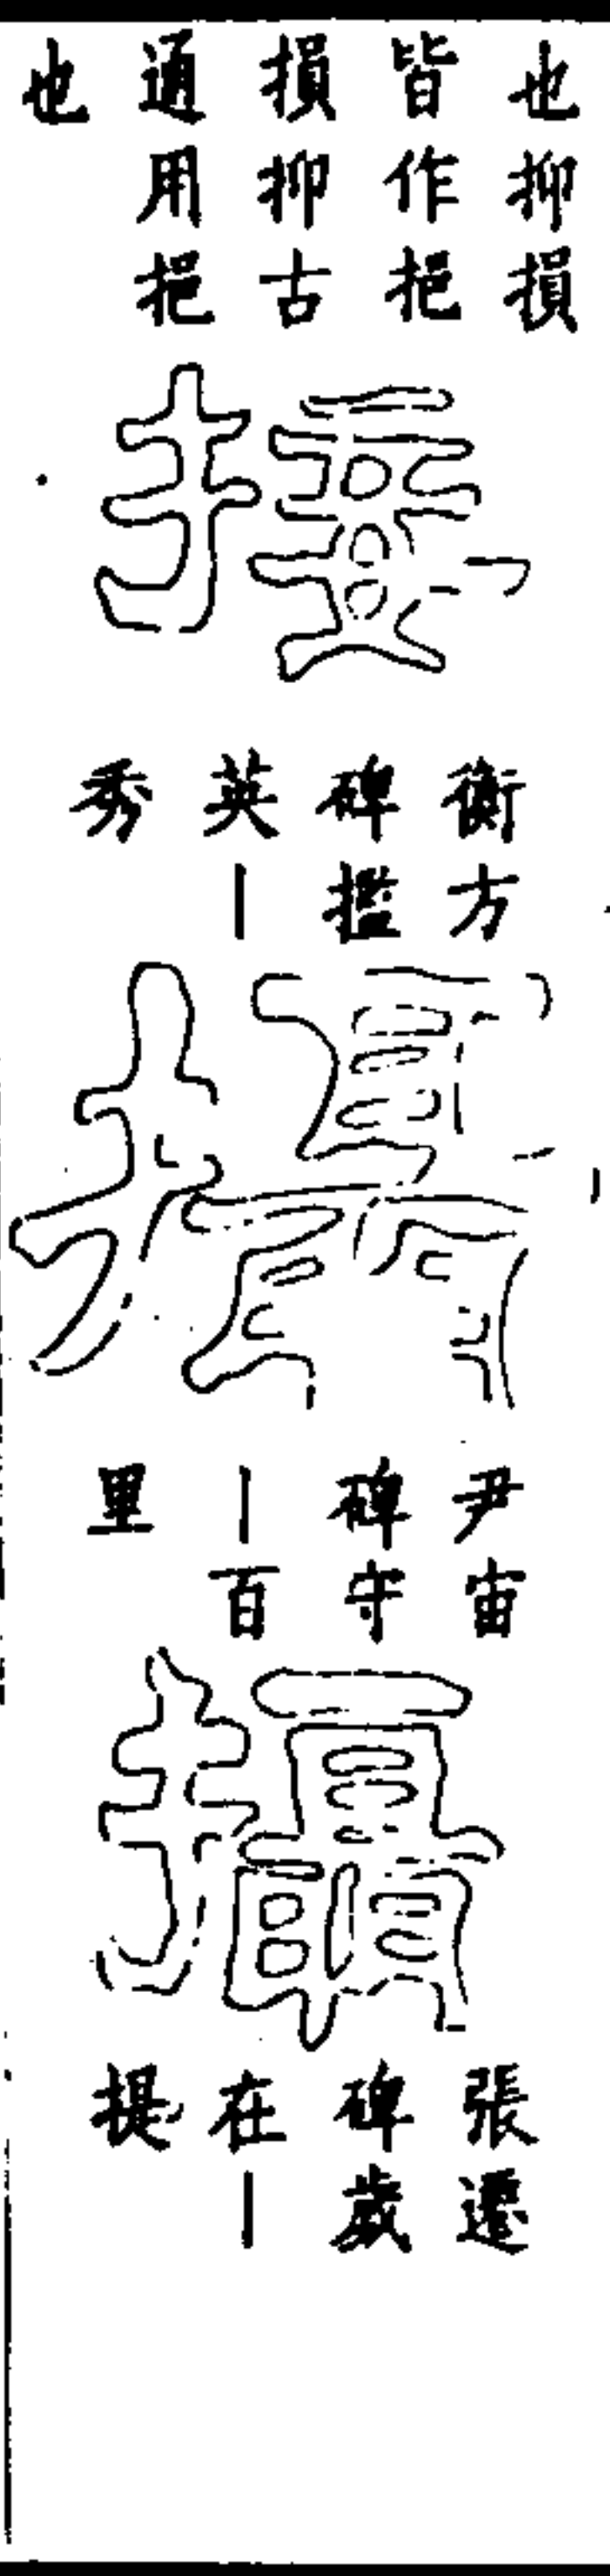 也抑損
皆作挹
損抑古
通用挹
也
接
衡方
碑㩜
英｜
秀
攝
尹宙
碑守
｜百
里
攝
張遷
碑歲
在｜
提